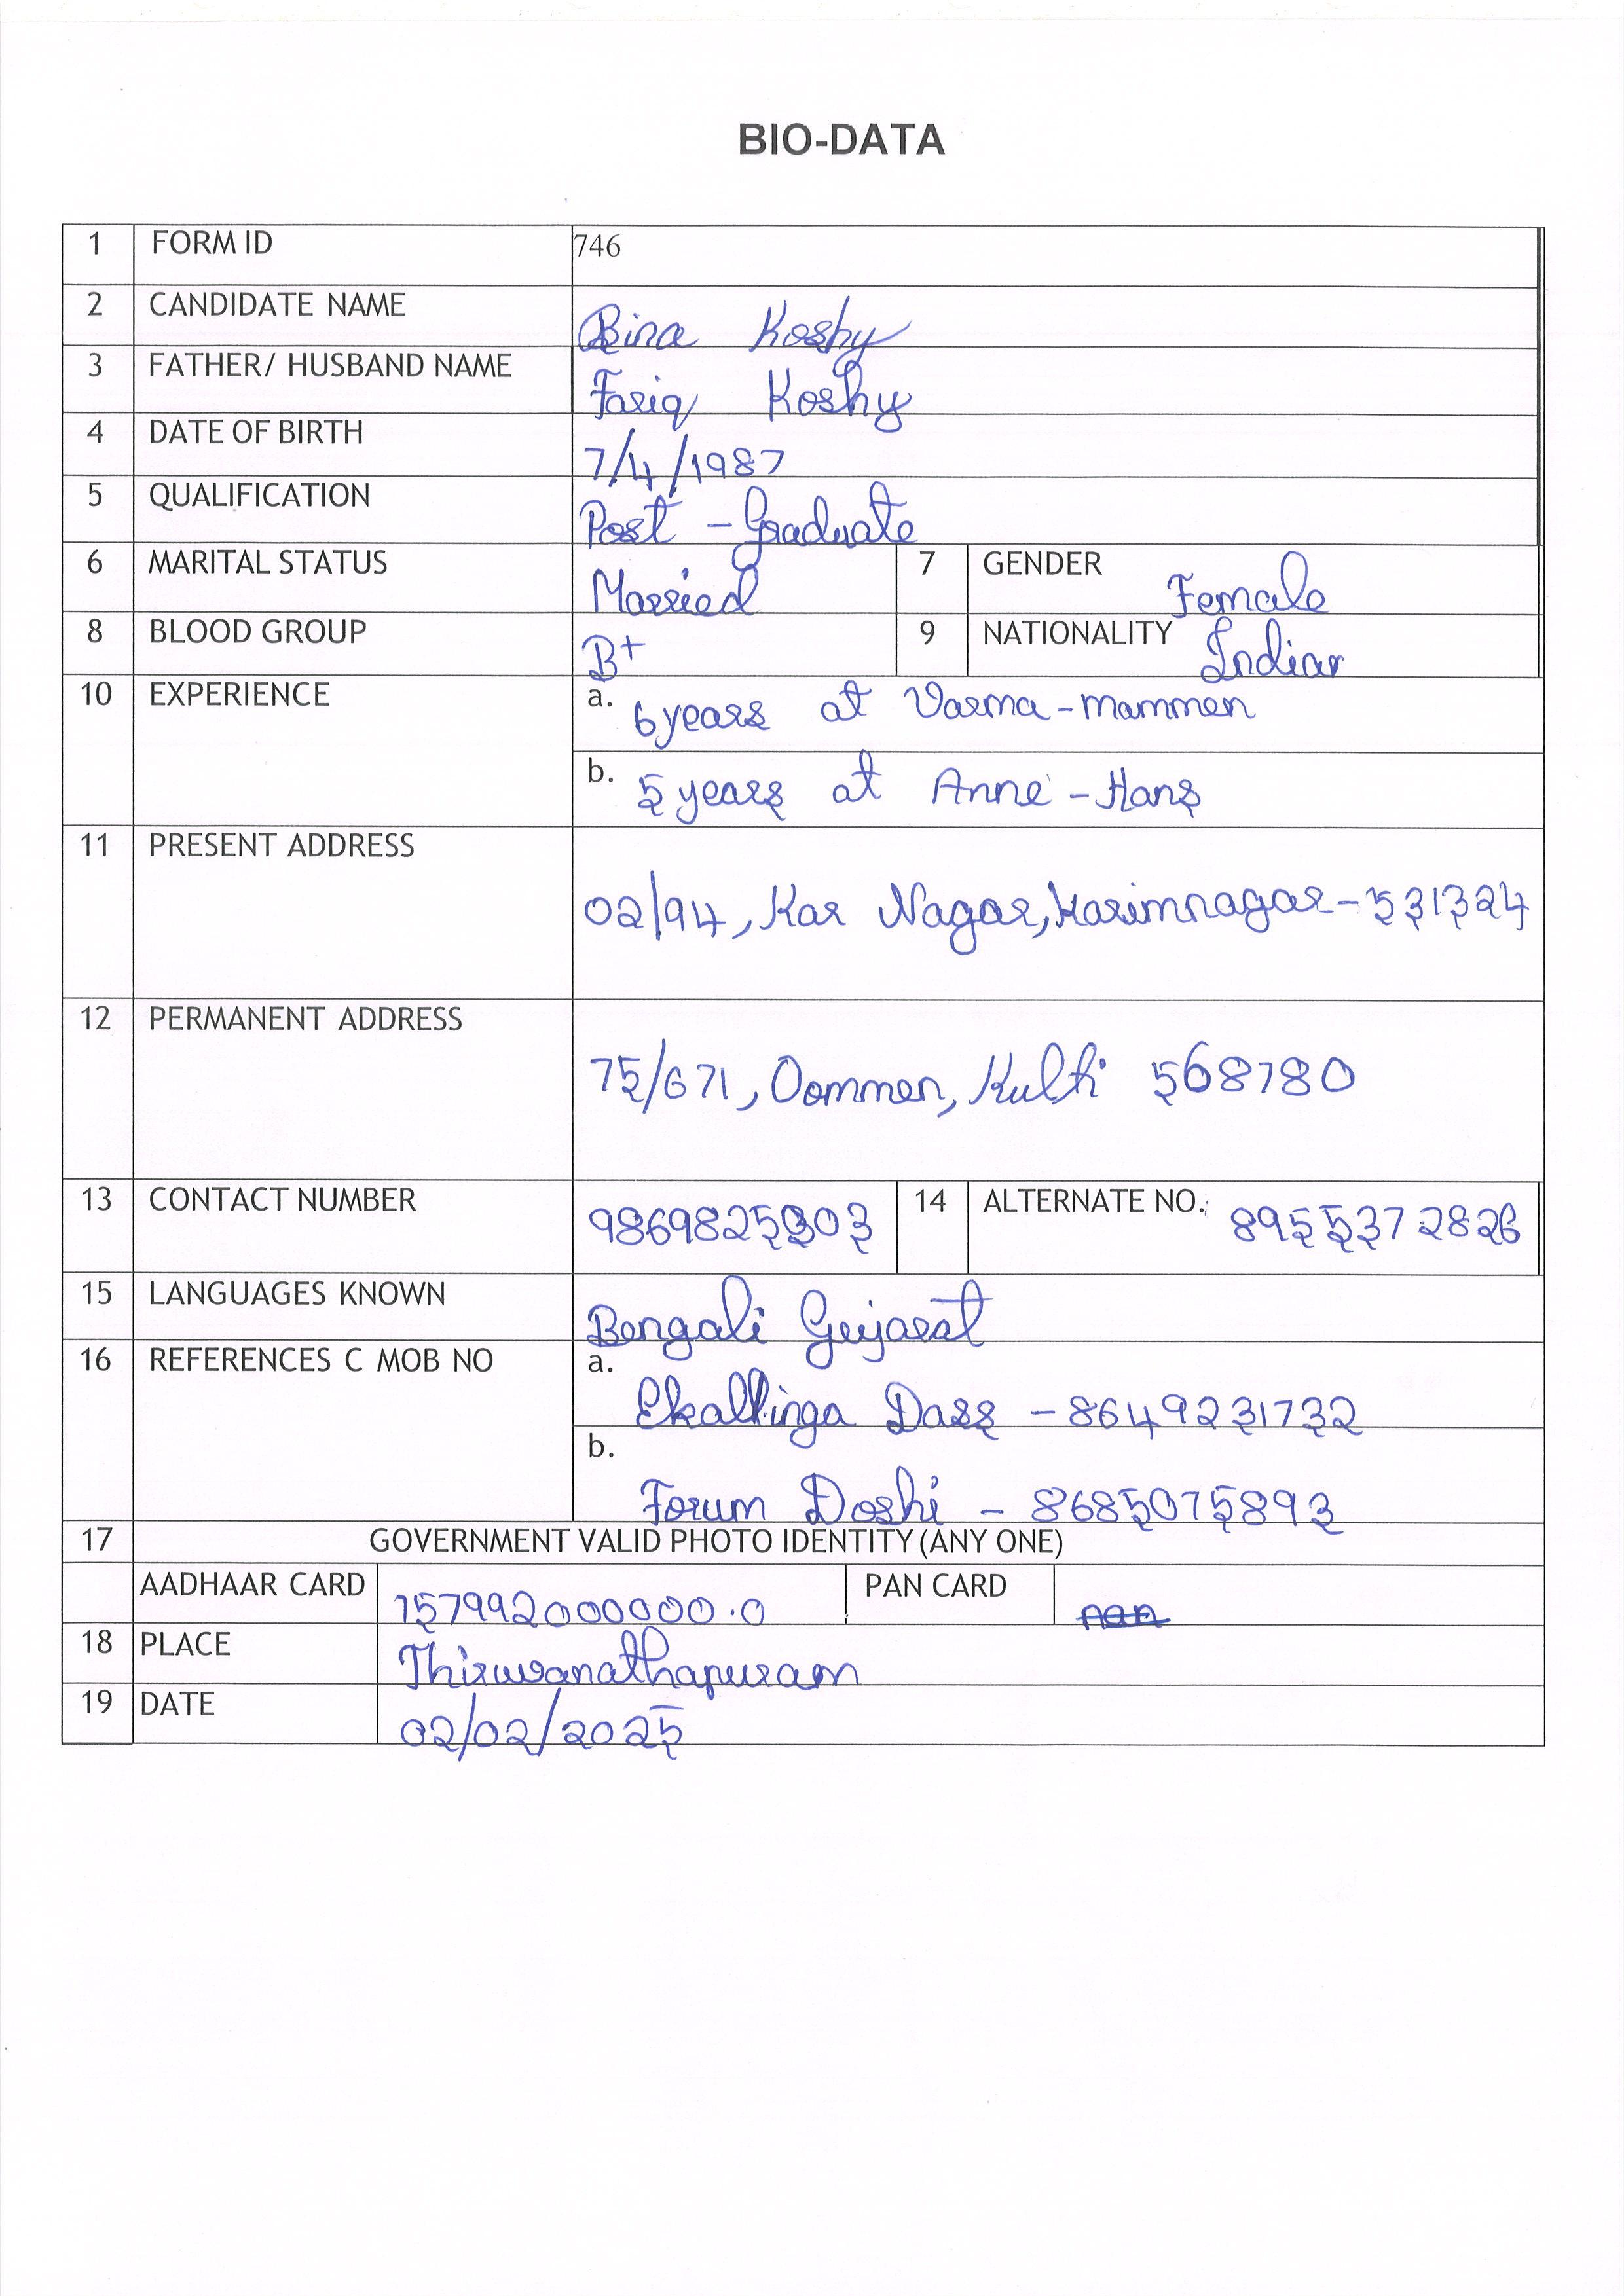 BIO-DATA
1 FORM ID 746
2 CANDIDATE NAME Bina Koshy
3 FATHER/ HUSBAND NAME Fariq Koshy
4 DATE OF BIRTH 7/4/1987
5 QUALIFICATION Post - Graduate
6 MARITAL STATUS Married 7 GENDER Female
8 BLOOD GROUP B+ 9 NATIONALITY Indian
10 EXPERIENCE a. 6 years at Varma - mammen
b. 5 years at Anne - Hans
11 PRESENT ADDRESS
02/94, Kar Nagar, Karimnagar - 531324
12 PERMANENT ADDRESS
75/671, Oommen, Kulti 568780
13 CONTACT NUMBER 9869825303 14 ALTERNATE NO.: 8955372826
15 LANGUAGES KNOWN Bengali Gujarat
16 REFERENCES C MOB NO a. Ekalinga Dass - 8649231732
b. Forum Doshi - 8685075893
17 GOVERNMENT VALID PHOTO IDENTITY (ANY ONE)
AADHAAR CARD 157992000000.0 PAN CARD nan
18 PLACE Thiruvanathapuram
19 DATE 02/02/2025